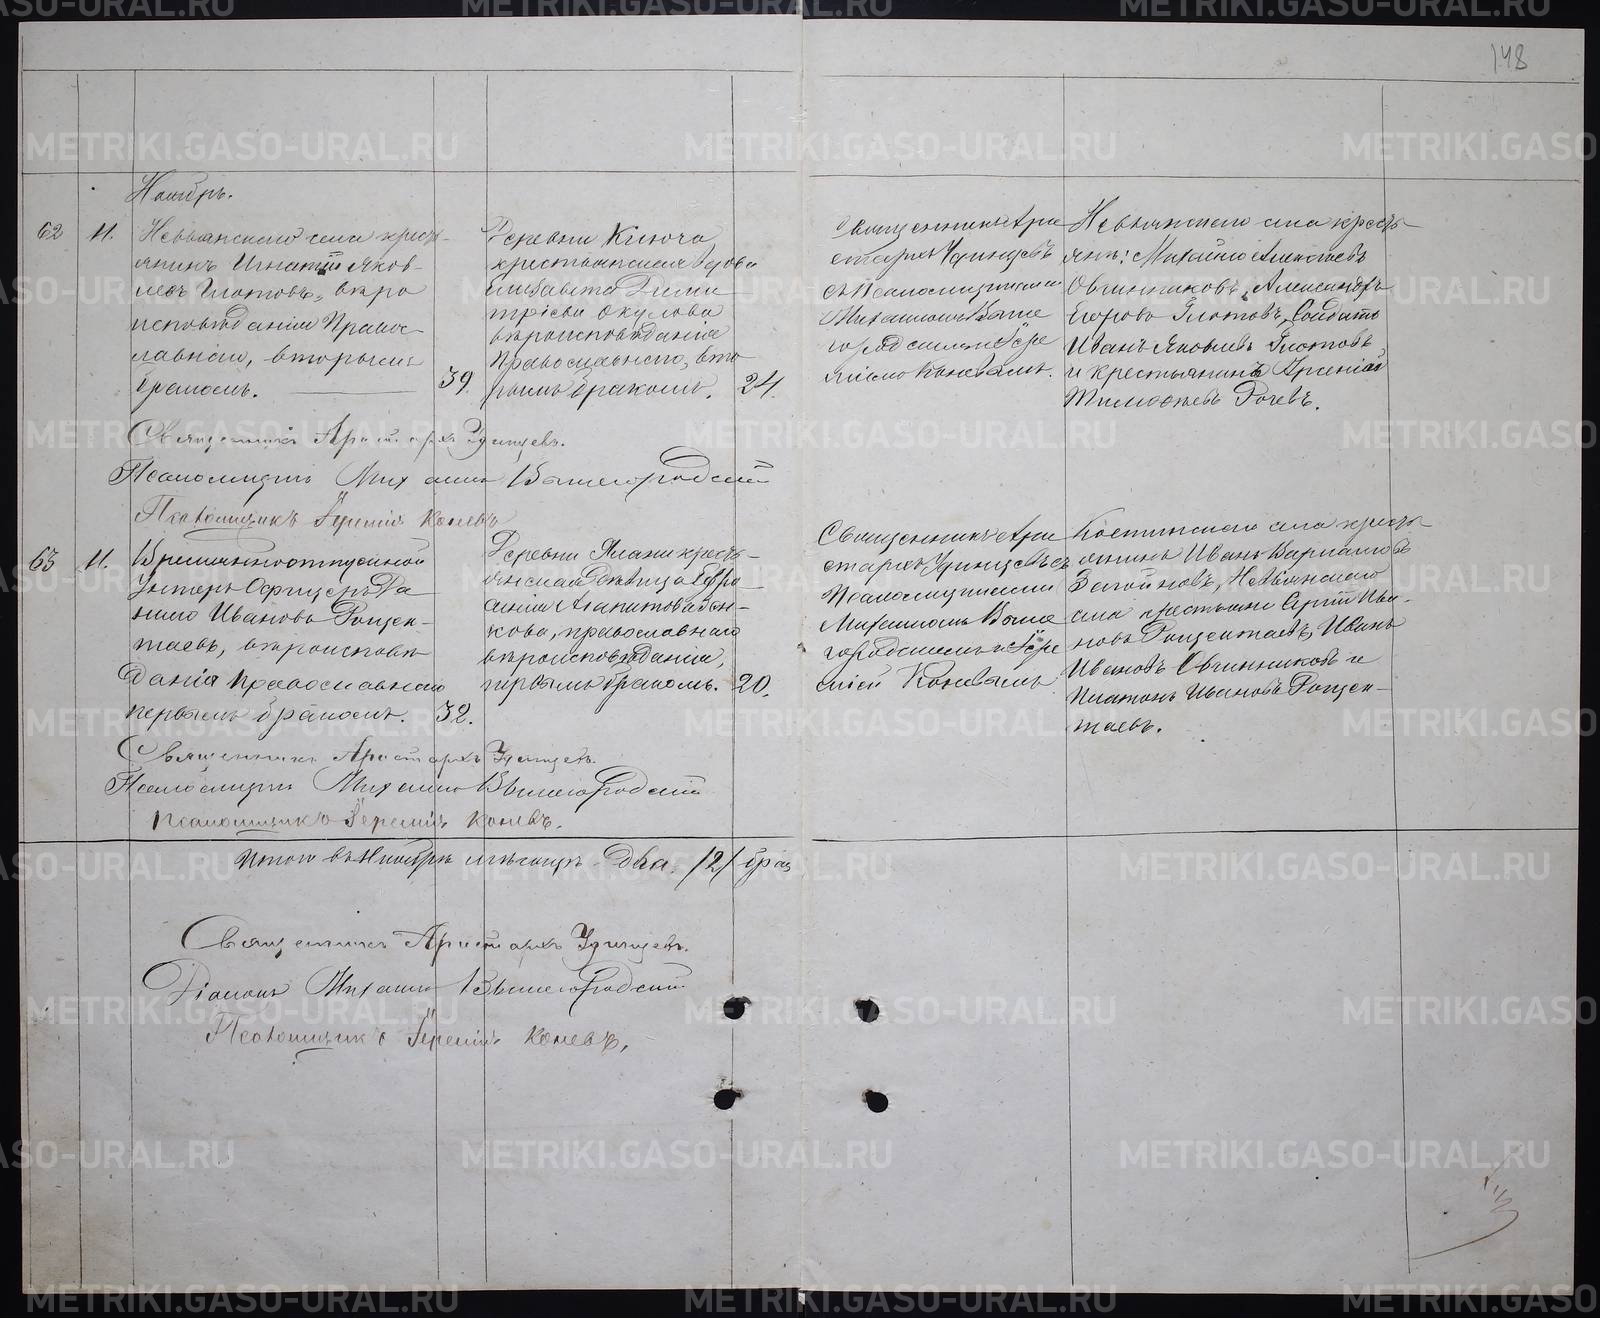 148
Ноябрь.
62 11. Невьянскаго села кресть-
янинъ Игнатий Яков-
левъ Глотовъ, вѣро
исповѣданія Правос-
лавнаго, вторымъ
бракомъ. 39.
Деревни Ключа
крестьянская вдова
Елизавета Дими
тріева Окулова
вѣроисповѣданія
Православнаго, вто
рымъ бракомъ. 24.
Священникъ Ари
стархъ Удинцевъ
съ Псаломщиками
Михаиломъ Выше
городскимъ и Іере
міею Коневымъ.
Невьянскаго села кресть-
яне: Михайло Алексѣевъ
Овчинниковъ, Александръ
Егоровъ Глотовъ, Солдатъ
Иванъ Яковлевъ Глотовъ
и крестьянинъ Арсеній
Тимофѣевъ Рачевъ.
Священникъ Аристархъ Удинцевъ.
Псаломщикъ Михаилъ Вышегородскій
Псаломщикъ Іеремій Коневъ
63 11. Временноотпускной
Унтеръ Офицеръ Да
нило Ивановъ Рощек-
таевъ, вѣроисповѣ
данія православнаго
первымъ бракомъ. 32.
Деревни Ялани кресть-
янская дѣвица Евфра
православнаго
вѣроисповѣданія,
первымъ бракомъ. 20.
Священникъ Ари
стархъ Удинцевъ съ
Псаломщиками
Михаиломъ Выше
городскимъ и Іере
міей Коневымъ
Костинскаго села кресть
янинъ Иванъ
Невьянскаго
села крестьяне Сергій Ива-
новъ Рощектаевъ, Иванъ
Ивановъ Овчинниковъ и
Платонъ Ивановъ Рощек-
таевъ.
Священникъ Аристархъ Удинцевъ.
Псаломщикъ Михаилъ Вышегородскій
Псаломщикъ Іеремій Коневъ.
Итого въ Ноябрѣ мѣсяцѣ два /2/ брак
Священникъ Аристархъ Удинцевъ.
Діаконъ Михаилъ Вышегородскій
Псаломщикъ Іеремій Коневъ.
METRIKI.GASO-URAL.RU